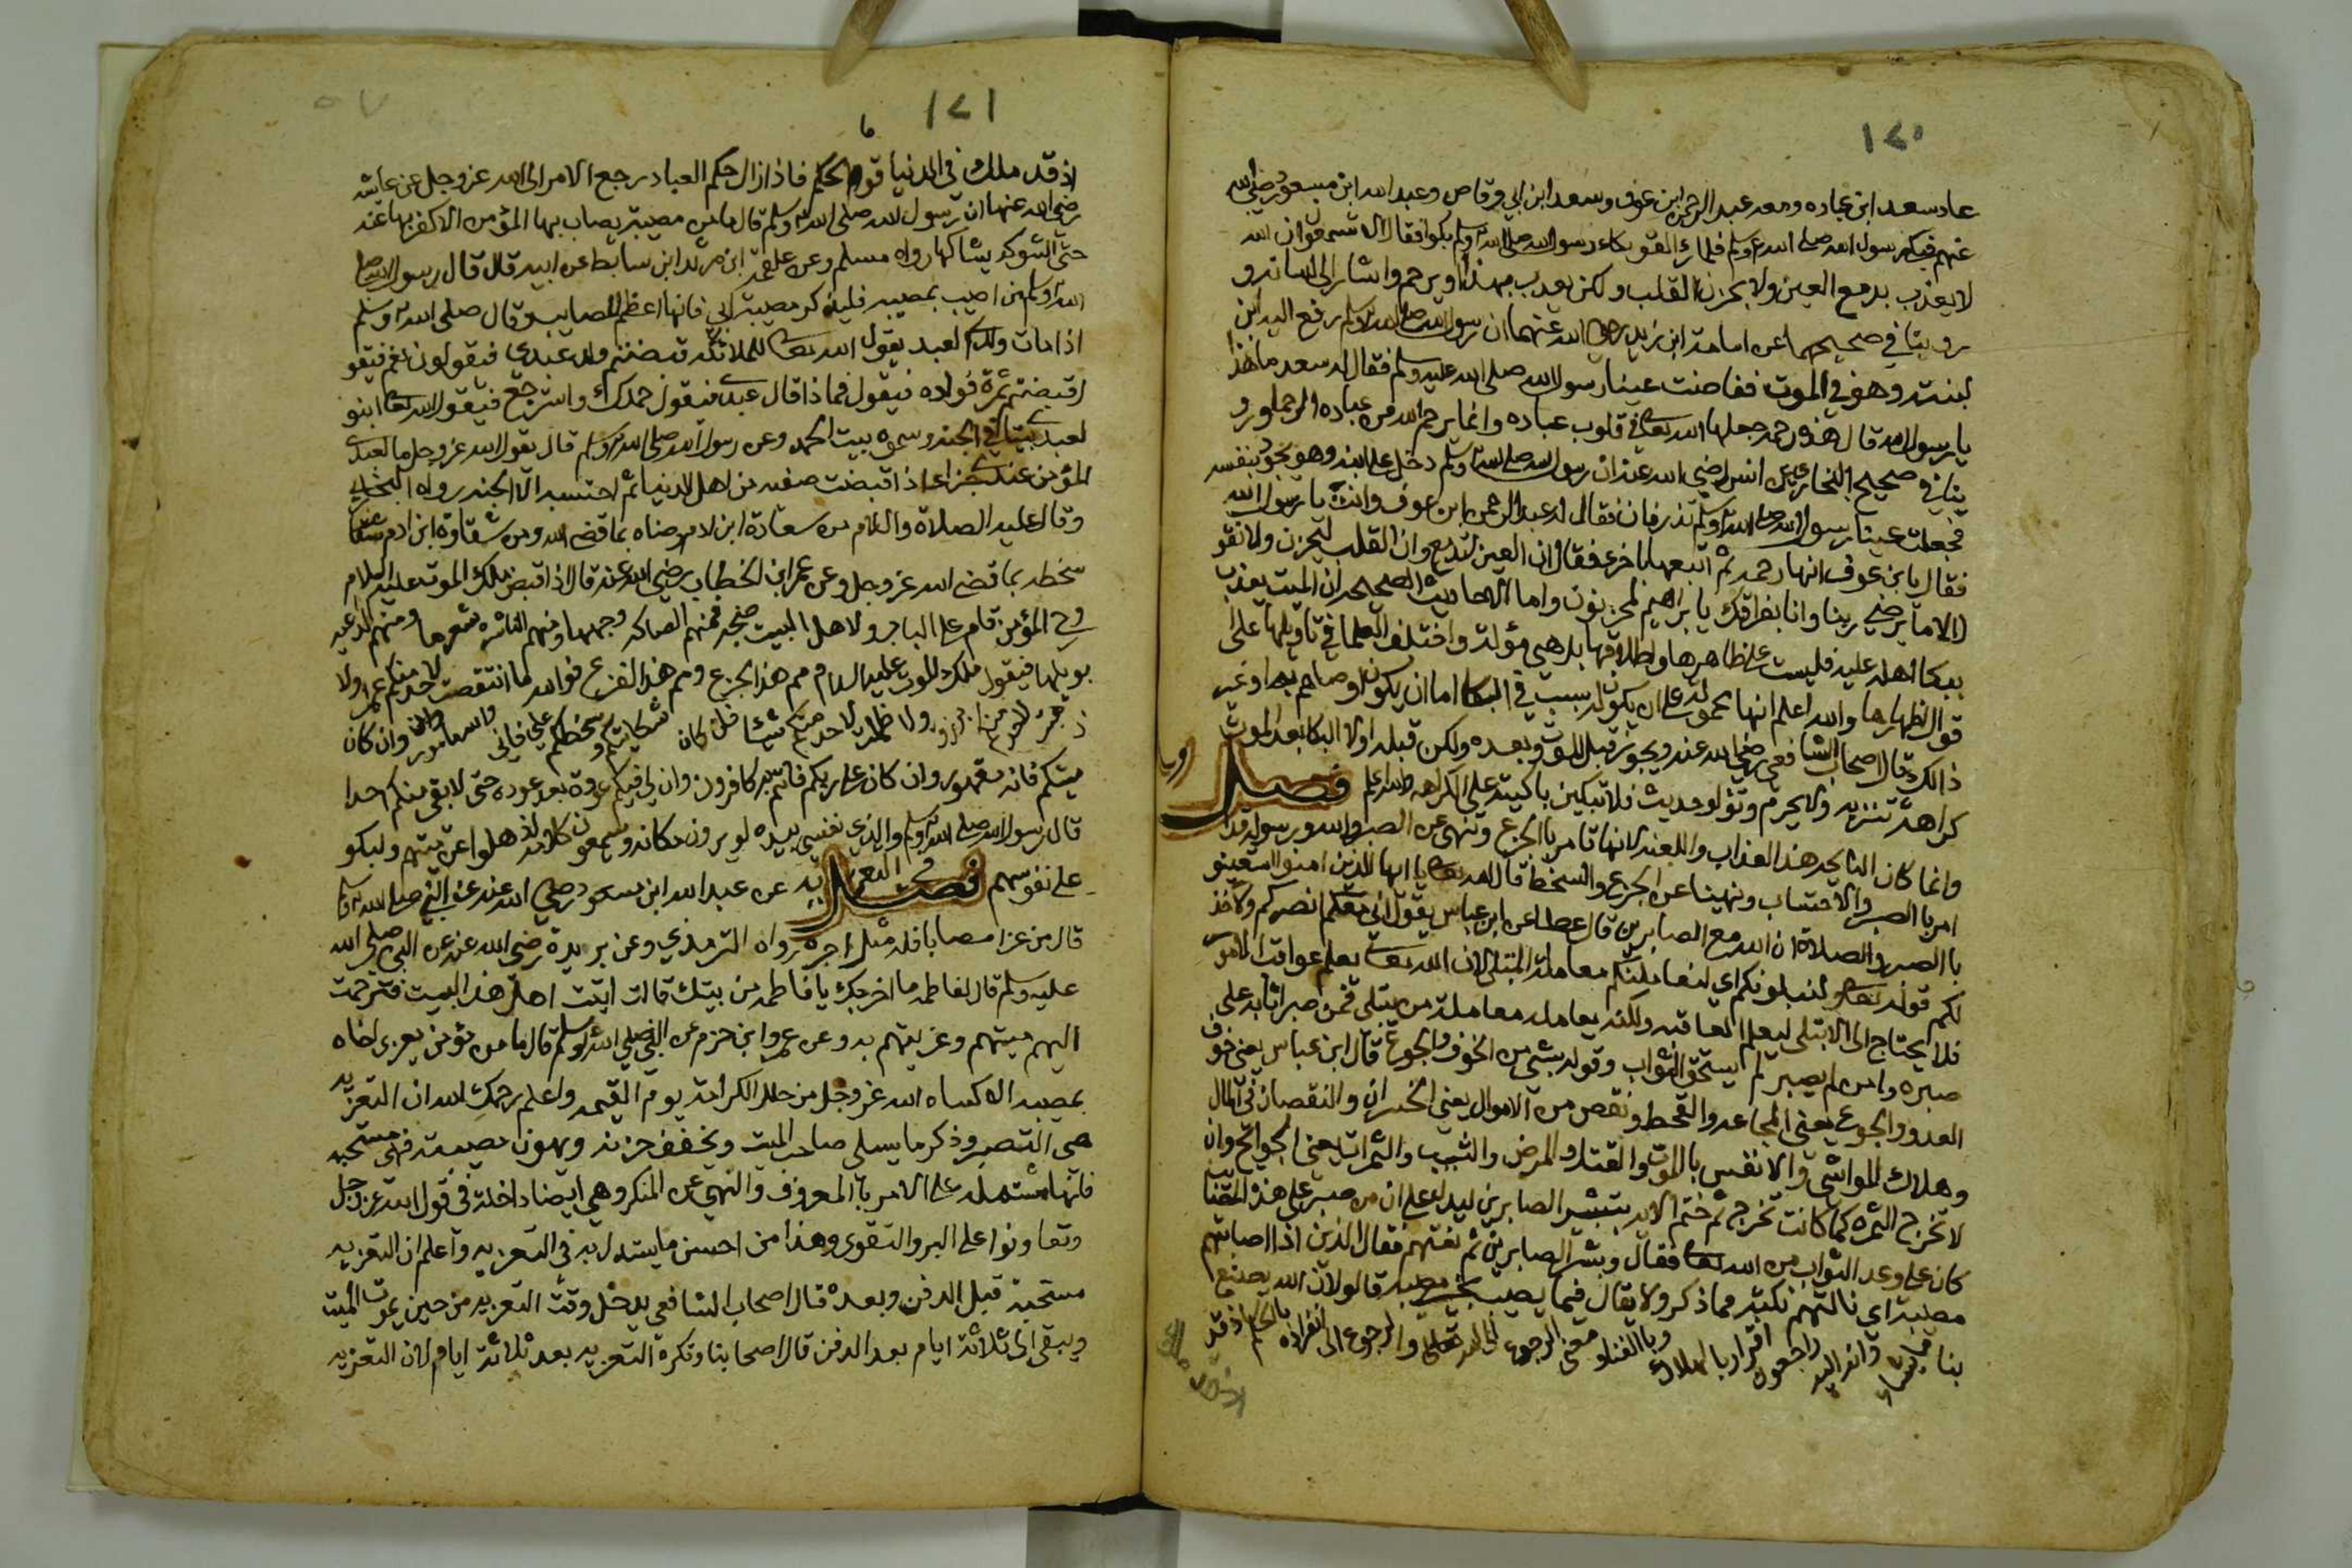 ١٢٠
عاد سعد ابن عباده ومعه عبد الرحمن ابن عوف وسعد ابن ابي وقاص وعبد الله ابن مسعود رضي الله
عنهم فبكى رسول الله صلى الله عليه وسلم فلما رأ القوم بكاء رسول الله صلى الله عليه وسلم بكوا فقال الا تسمعوا ان الله
لا يعذب بدمع العين ولا بحزن القلب ولكن يعذب بهذا او يرحم واشار الى لسانه و
روينا في صحيحيهما عن اسامة ابن زيد رضي الله عنهما ان رسول الله صلى الله عليه وسلم رفع اليه ابن
لبنته وهو في الموت ففاضت عينا رسول الله صلى الله عليه وسلم فقال له سعد ما هذا
يا رسول الله قال هذه رحمه جعلها الله تعالى في قلوب عباده وانما يرحم الله من عباده الرحما ورو
ينا في صحيح البخاري عن انس رضي الله عنه ان رسول الله صلى الله عليه وسلم دخل على ابنه وهو يجود بنفسه
فجعلت عينا رسول الله صلى الله عليه وسلم تذرفان فقال له عبد الرحمن ابن عوف وانت يا رسول الله
فقال يابن عوف انها رحمه ثم اتبعها باخرى فقال ان العين تدمع وان القلب ليحزن ولا نقو
الا ما يرضي ربنا وانا بفراقك يا براهيم لمحزنون واما الاحاديث الصحيحه ان الميت يعذب
ببكا اهله عليه فليست على ظاهرها واطلاقها بل هي مؤلة واختلف العلما في تاويلها على
قوال اظهارها والله اعلم انها محموله على ان يكون له سبب في البكا اما ان يكون اوصاهم به او غير
ذالك قال اصحاب الشافعي رضي الله عنه ويجوز قبل الموت وبعده ولكن قبله اولا البكا بعد الموت
كراهة تنزيه ولا يحرم وتؤلو حديث فلا تبكين باكيته على الكراهه والله اعلم فصل
وانما كان النايحه هذا العذاب واللعنه لانها تامر بالجزع وتنهى عن الصبر والله ورسوله قد
امر با الصبر والاحتساب ونهينا عن الجزع والسخط قال الله تعالى يا ايها الذين امنوا استعينو
با الصبر والصلاة ان الله مع الصابرين قال عطا عن ابن عباس يقول اني معكم انصركم ولا اخذ
لكم قوله تعالى ولنبلونكم اي لنعاملنكم معاملة المبتلى لان الله تعالى يعلم عواقب الامور
فلا يحتاج الى الابتلى ليعلم العاقبه ولكنه يعامله معاملة من يبتلى فمن صبر اثابه على
صبره ومن لم يصبر لم يستحق الثواب وقوله بشي من الخوف والجوع قال ابن عباس يعني خوف
العدو والجوع يعني المجاعه والقحط ونقص من الاموال يعني الخسران والنقصان في المال
وهلاك المواشي والانفس بالموت والقتل والمرض والشيب والثمرات يعني الجوائح وان
لا تخرج الثمره كما كانت تخرج ثم ختم الايه بتبشير الصابرين ليدل على ان من صبر على هذه المصايب
كان على وعد الثواب من الله تعالى فقال وبشر الصابرين ثم نعتهم فقال الذين اذا اصابتهم
مصيبة اي نالتهم نكبة مما ذكر ولا يقال فيما يصيب بخير مصيبه قالوا لان الله يصنع
بنا ما يشاء وانا اليه راجعون اقرارا بالهلاك وبا الفنا ومعنى الرجوع الى الله تعالى والرجوع الى انفراده بالحكم اذ قد
١٢١
اذ قد ملك في الدنيا قوم الحكم فاذا زال حكم العباد رجع الامر الى الله عز وجل عن عايشه
رضي الله عنها ان رسول الله صلى الله عليه وسلم قال ما من مصيبة يصاب بها المؤمن الا كفر بها عنه
حتى الشوكه يشاكها رواه مسلم وعن علقمة ابن مرثد ابن سابط عن ابيه قال قال رسول الله صلى
الله عليه وسلم من اصيب بمصيبه فليذكر مصيبته بي فانها اعظم المصايب وقال صلى الله عليه وسلم
اذا مات ولد لعبد يقول الله تعالى للملائكه قبضتم ولد عبدي فيقولون نعم فيقو
اقبضتم ثمرة فواده فيقول فما ذا قال عبدي فيقول حمدك واسترجع فيقول الله تعالى ابنو
لعبدي بيتا في الجنه وسموه بيت الحمد وعن رسول الله صلى الله عليه وسلم قال يقول الله عز وجل ما لعبدي
المؤمن عندي جزاء اذا قبضت صفيه من اهل الدنيا ثم احتسبه الا الجنه رواه البخاري
وقال عليه الصلاة والسلام من سعادة ابن ادم رضاه بما قضى الله ومن شقاوة ابن ادم
سخطه بما قضى الله عز وجل وعن عمر ابن الخطاب رضي الله عنه قال اذا قبض ملك الموت عليه السلام
روح المؤمن قام على الباب ولاهل البيت ضجه فمنهم الصاكه وجهها ومنهم الناشره شعرها ومنهم الداعيه
بويلها فيقول ملك الموت عليه السلام مم هذا الجزع ومم هذا الفزع فوالله ما انتقصت لاحد منكم عمرا ولا
ولا ظلمت لاحد منكم شيئا فان كان شكايتكم وسخطكم علي فاني والله مامور وان كان
ميتكم فانه مقهور وان كان على ربكم فانتم به كافرون وان لي فيكم عودة بعد عوده حتى لا يبقى منكم احدا
قال رسول الله صلى الله عليه وسلم والذي نفسي بيده لو يرون مكانه ويسمعون كلامه لذهلوا عن ميتهم ولبكو
على نفوسهم فصل في التعزيه عن عبد الله ابن مسعود رضي الله عنه عن النبي صلى الله عليه وسلم
قال من عزا مصابا فله مثل اجره رواه الترمذي وعن بريدة رضي الله عنه عن النبي صلى الله
عليه وسلم قال لفاطمه ما اخرجك يا فاطمه من بيتك قالت اتيت اهل هذا البيت فترحمت
اليهم ميتهم وعزيتهم به وعن عمرو ابن حزم عن النبي صلى الله عليه وسلم قال ما من مؤمن يعزي اخاه
بمصيبه الا كساه الله عز وجل من حلل الكرامة يوم القيمه واعلم رحمك الله ان التعزيه
هي التصبر وذكر ما يسلي صاحب الميت ويخفف حزنه ويهون مصيبته فهي مستحبه
فانها مشتمله على الامر بالمعروف والنهي عن المنكر وهي ايضا داخلة في قول الله عز وجل
وتعاونوا على البر والتقوى وهذا من احسن ما يستدل به في التعزيه واعلم ان التعزيه
مستحبة قبل الدفن وبعده قال اصحاب الشافعي يدخل وقت التعزيه من حين يموت الميت
ويبقى الى ثلاثة ايام بعد الدفن قال اصحابنا وتكره التعزيه بعد ثلاثة ايام لان التعزيه